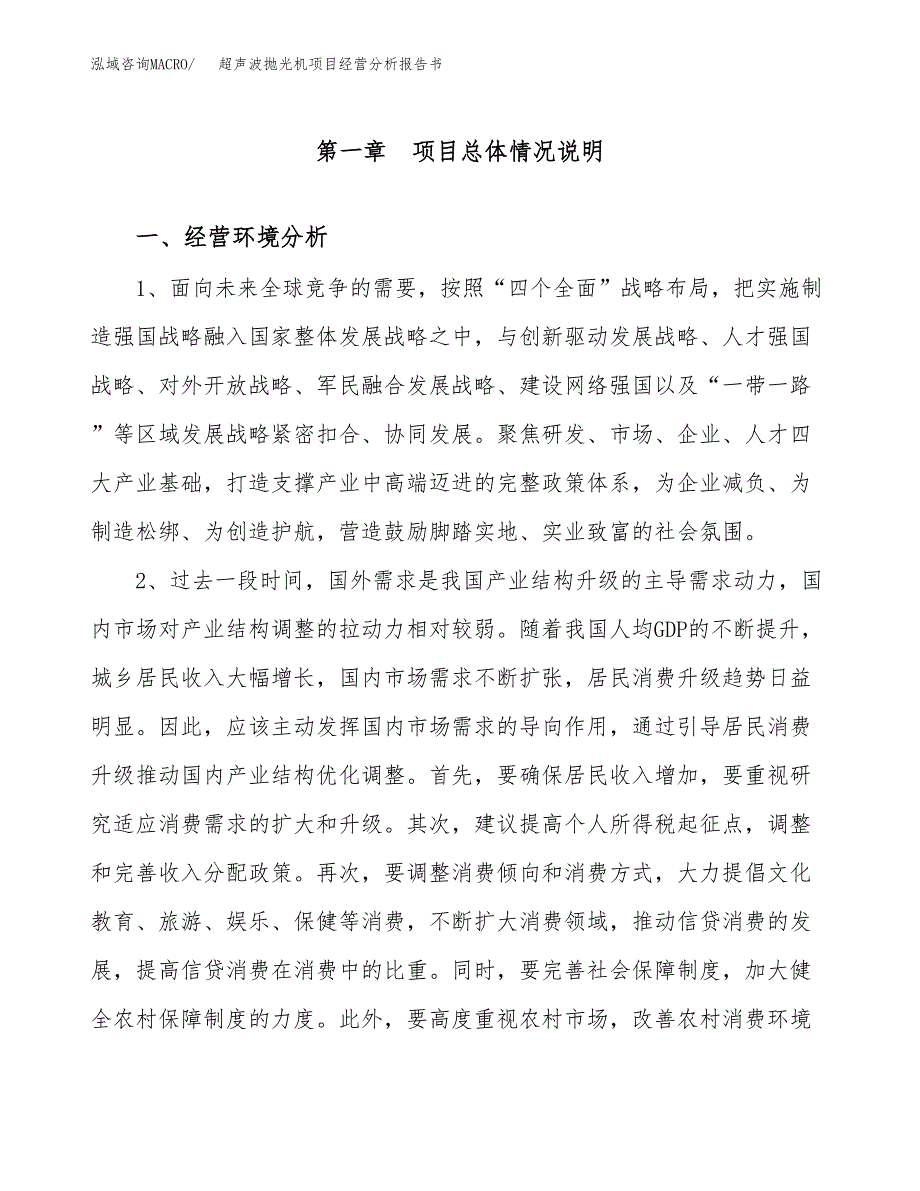 泓域咨询MACRO/ 超声波抛光机项目经营分析报告书
第一章 项目总体情况说明
一、经营环境分析
1、面向未来全球竞争的需要，按照“四个全面”战略布局，把实施制
造强国战略融入国家整体发展战略之中，与创新驱动发展战略、人才强国
战略、对外开放战略、军民融合发展战略、建设网络强国以及“一带一路
”等区域发展战略紧密扣合、协同发展。聚焦研发、市场、企业、人才四
大产业基础，打造支撑产业中高端迈进的完整政策体系，为企业减负、为
制造松绑、为创造护航，营造鼓励脚踏实地、实业致富的社会氛围。
2、过去一段时间，国外需求是我国产业结构升级的主导需求动力，国
内市场对产业结构调整的拉动力相对较弱。随着我国人均GDP的不断提升，
城乡居民收入大幅增长，国内市场需求不断扩张，居民消费升级趋势日益
明显。因此，应该主动发挥国内市场需求的导向作用，通过引导居民消费
升级推动国内产业结构优化调整。首先，要确保居民收入增加，要重视研
究适应消费需求的扩大和升级。其次，建议提高个人所得税起征点，调整
和完善收入分配政策。再次，要调整消费倾向和消费方式，大力提倡文化
教育、旅游、娱乐、保健等消费，不断扩大消费领域，推动信贷消费的发
展，提高信贷消费在消费中的比重。同时，要完善社会保障制度，加大健
全农村保障制度的力度。此外，要高度重视农村市场，改善农村消费环境